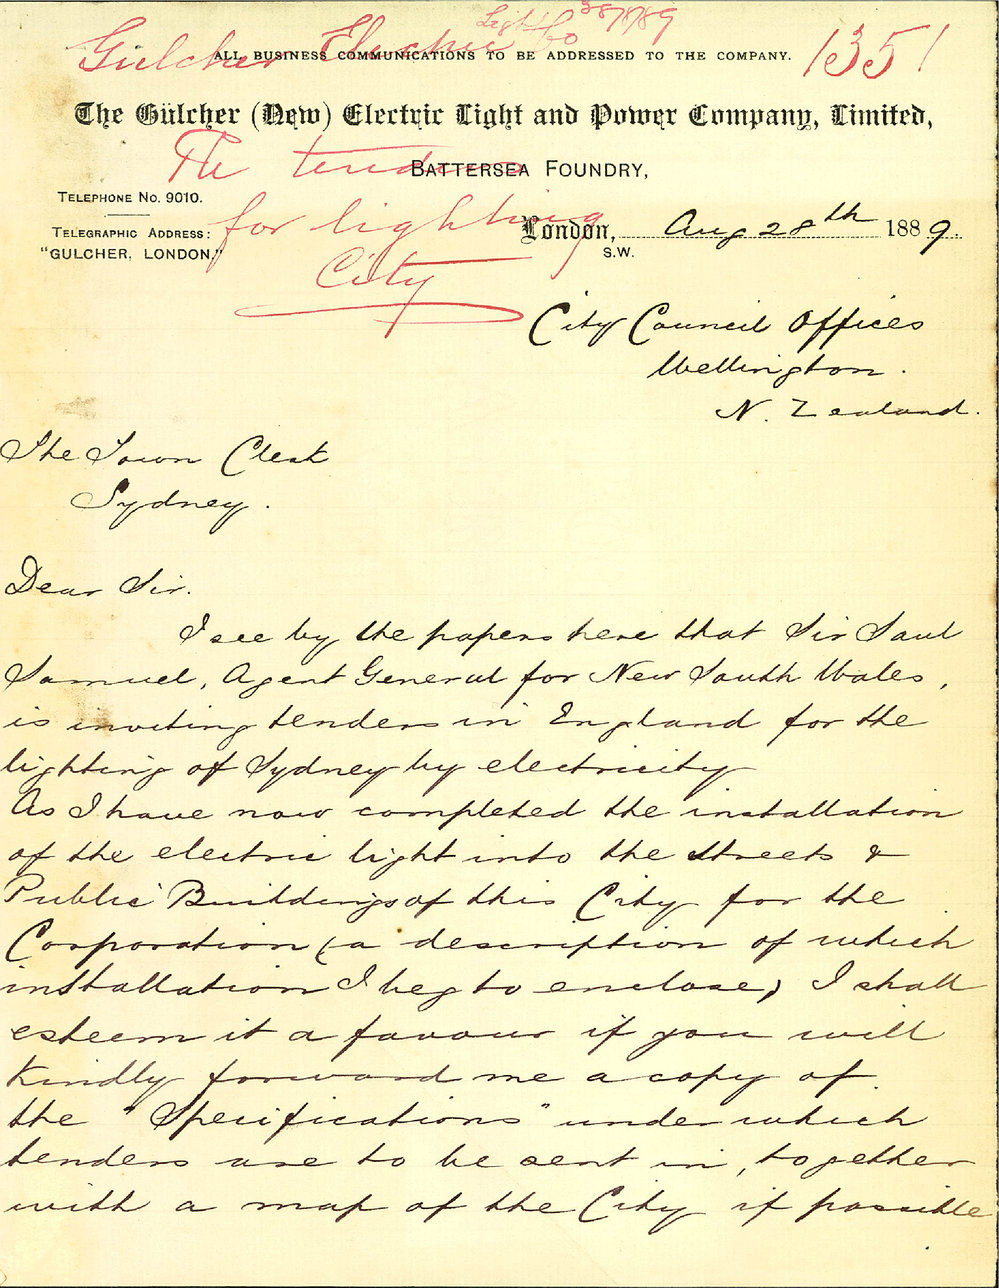 Gülcher Electric Light Co
1351
ALL BUSINESS COMMUNICATIONS TO BE ADDRESSED TO THE COMPANY.
The Gülcher (New) Electric Light and Power Company, Limited,
BATTERSEA FOUNDRY,
TELEPHONE No. 9010.
TELEGRAPHIC ADDRESS:
"GULCHER, LONDON,"
London, Aug 28th 1889.
S.W.
The tenders
for lighting
City
City Council Offices
Wellington.
N. Zealand.
The Town Clerk
Sydney.
Dear Sir.
I see by the papers here that Sir Saul
Samuel, Agent General for New South Wales,
is inviting tenders in England for the
lighting of Sydney by electricity
As I have now completed the installation
of the electric light into the streets &
Public Buildings of this City for the
Corporation (a description of which
installation I beg to enclose) I shall
esteem it a favour if you will
Kindly forward me a copy of
the "Specifications" under which
tenders are to be sent in, together
with a map of the City if possible